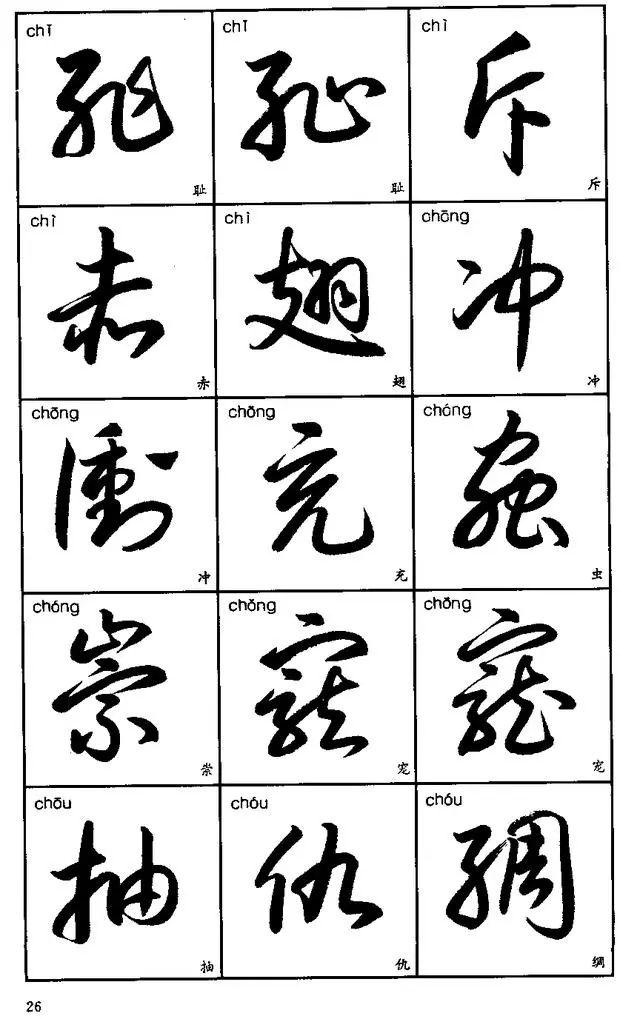 chǐ chǐ chì
耻 耻 斥
耻 耻 斥
chì chì chōng
赤 翅 冲
赤 翅 冲
chōng chōng chóng
衝 充 蟲
冲 充 虫
chóng chǒng chǒng
崇 寵 寵
崇 宠 宠
chōu chóu chóu
抽 仇 綢
抽 仇 绸
26